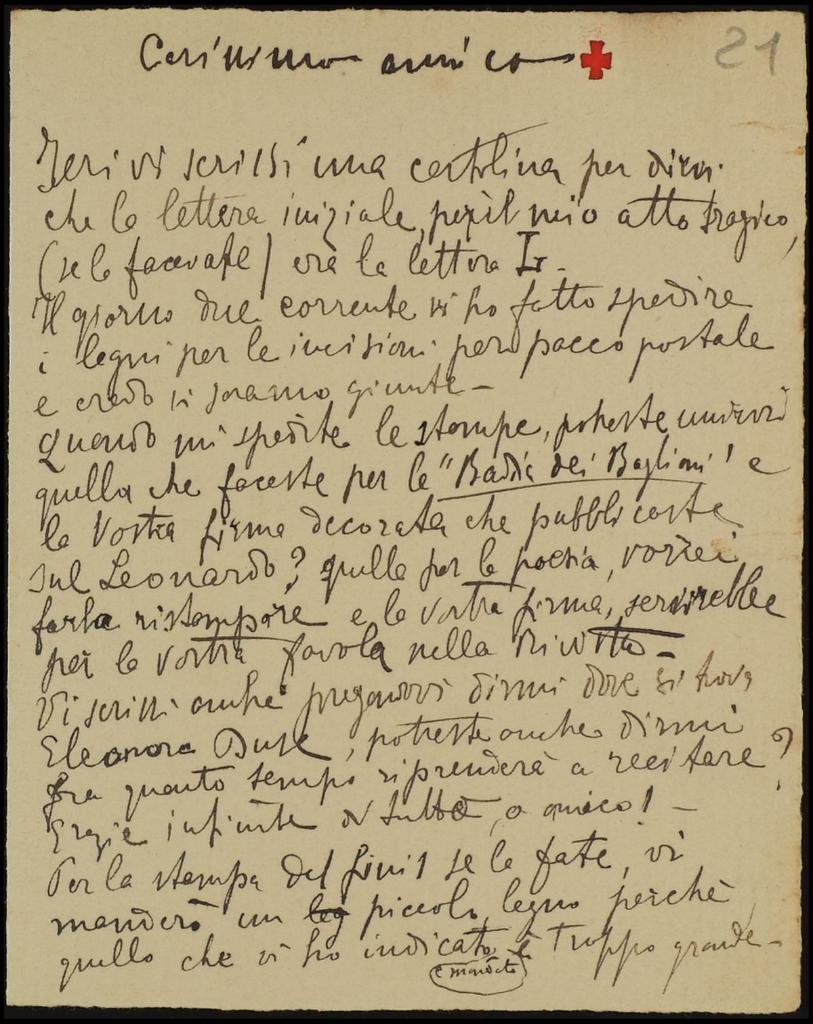 Carissimo amico
21
Ieri vi scrissi una cartolina per dirvi
che la lettera iniziale, per il mio atto tragico,
(se la facevate) era la lettera
Il giorno due corrente vi ho fatto spedire
i legni per le incisioni per pacco postale
e credo vi saranno giunte -
Quando mi spedite le stampe, potreste unirvi
quella che faceste per la "Badia dei Baglioni" e
la Vostra firma decorata che pubblicaste
sul Leonardo? quella per la poesia, vorrei
farla ristampare e la vostra firma, servirebbe
per la vostra favola nella Rivista -
Vi scrissi anche pregandovi dirmi dove si trova
Eleonora Duse, potreste anche dirmi
fra quanto tempo riprenderà a recitare?
Grazie infinite di tutto, o amico! -
Per la stampa del finis se la fate, vi
manderò un leg piccolo legno perchè
quello che vi ho indicato è troppo grande -
e mandato